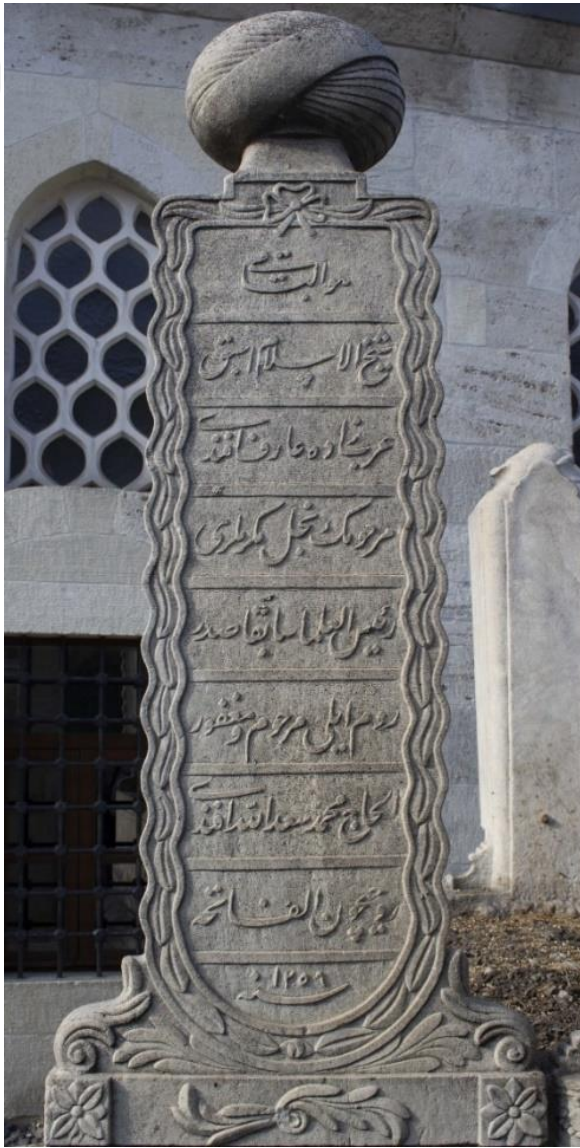 هو الباقى
شيخ الاسلام اسبق
عربزاده عارف افندى
مرحومك نجل مكرملرى
رئيس العلما سابقا صدر
روم ايلى مرحوم و مغفور
الحاج محمد سعد الله افندى
روحيچون الفاتحه
سنه ١٢٥٩